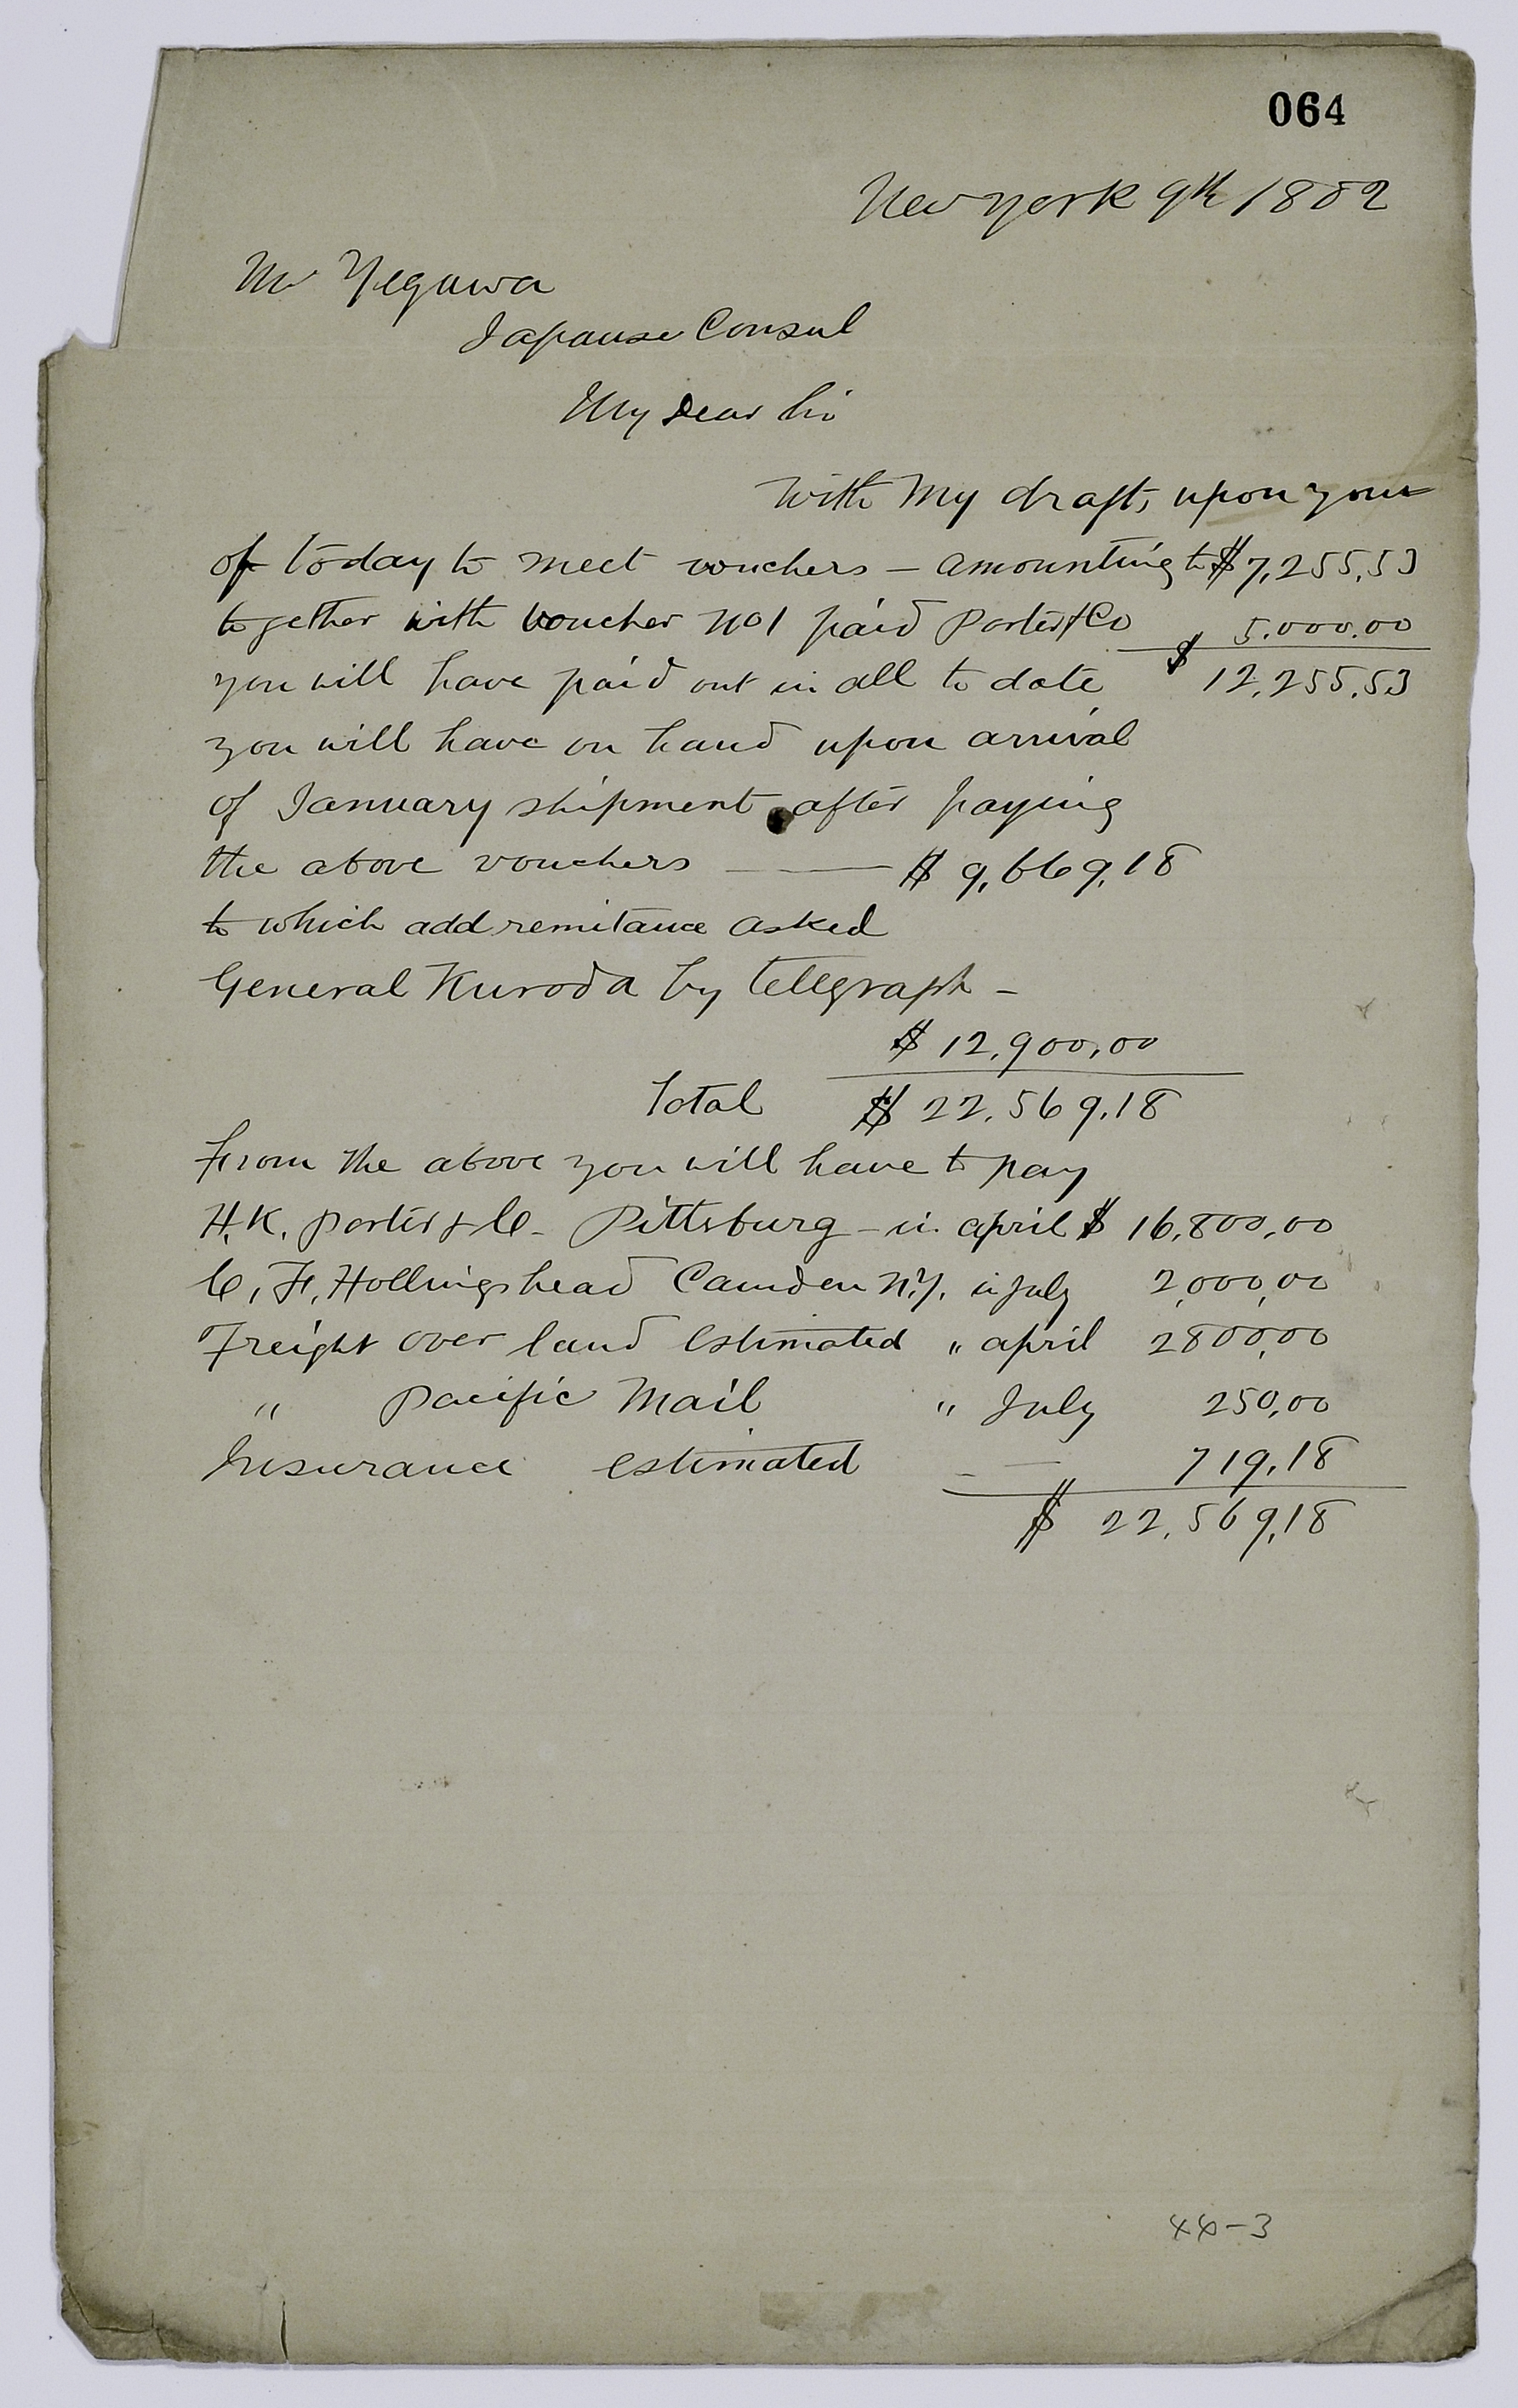 064
New York 9th 1882
Mr Yegawa
Japanse Consul
My Dear Sir
With my draft, upon you
of today to meet vouchers – amounting to $ 7,255.53
together with voucher No 1 paid Porter & Co 5.000.00
you will have paid out in all to date $ 12,255.53
you will have on hand upon arrival
of January shipment after paying
the above vouchers —— $ 9,669.18
to which add remitance asked
General Kuroda by telegraph –
$ 12,900.00
Total $ 22,569.18
From the above you will have to pay
H.K. Porter & Co – Pittsburg – in april $ 16,800.00
C. F. Hollingshead Camden N.J. in July 2,000,00
Freight over land estimated " april 2800,00
" Pacific Mail " July 250,00
Insurance estimated – — 719.18
$ 22,569.18
44-3